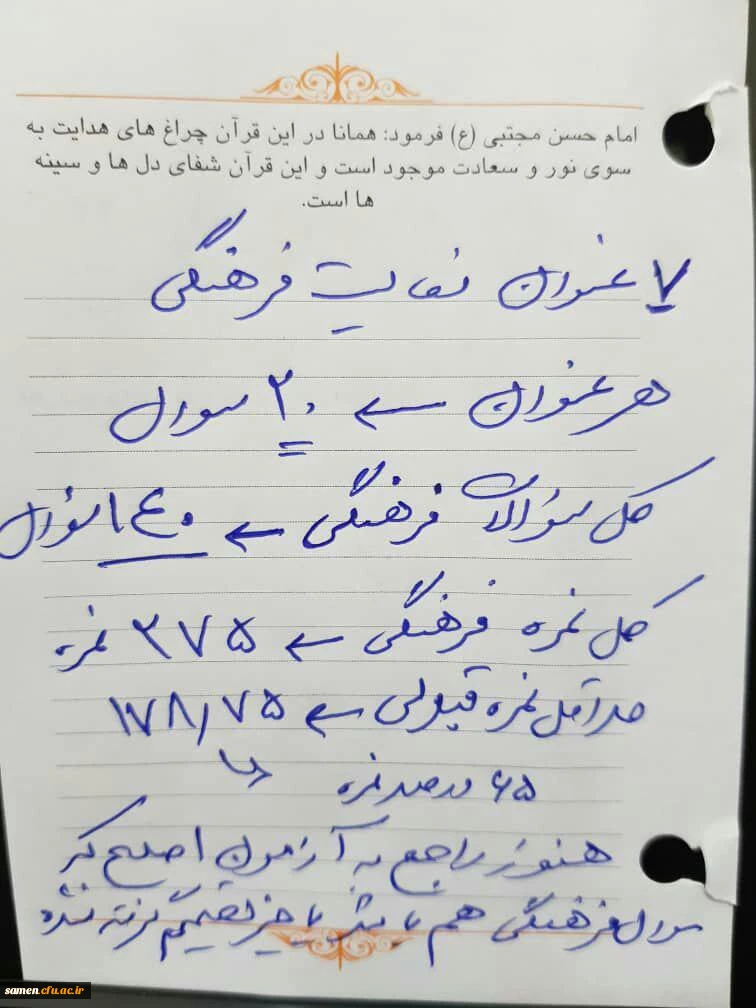 امام حسن مجتبی (ع) فرمود: همانا در این قرآن چراغ های هدایت به
سوی نور و سعادت موجود است و این قرآن شفای دل ها و سینه
ها است.
۷ عنوان فعالیت فرهنگی
هر عنوان ← ۲۰ سوال
کل سؤالات فرهنگی ← ۱۴۰ سؤال
کل نمره فرهنگی ← ۲۷۵ نمره
حداقل نمره قبولی ← ۱۷۸/۷۵
۶۵ درصد نمره
هنوز راجع به آزمون اصلح که
سوال فرهنگی هم باشد یا خیر تصمیم گرفته نشده
samen.cfu.ac.ir